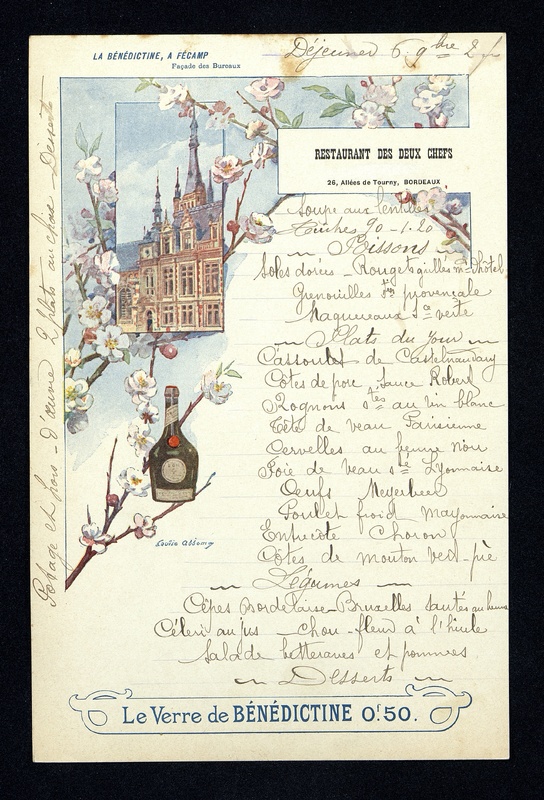 LA BÉNÉDICTINE, A FÉCAMP
Façade des Bureaux
Déjeuner 6 9bre 2f
RESTAURANT DES DEUX CHEFS
26, Allées de Tourny, BORDEAUX
Potage et hors-d'œuvre 2 plats au choix Desserts
Soupe aux lentilles
Huîtres 90 - 1.20
Poissons
Soles dorées - Rougets grillés m. d'hôtel
Grenouilles provençale
Maquereaux sce verte
Plats du jour
Cassoulet de Castelnaudary
Côtes de porc Sauce Robert
Rognons stés au vin blanc
Tête de veau Parisienne
Cervelles au beurre noir
Foie de veau ste Lyonnaise
Oeufs Meyerbeer
Poulet froid mayonnaise
Entrecôte Choron
Côtes de mouton vert-pré
Légumes
Cêpes Bordelaise - Bruxelles sautés au beurre
Céleri au jus - chou-fleur à l'huile
Salade betteraves et pommes
Desserts
Louise Abbema
Le Verre de BÉNÉDICTINE 0f.50.